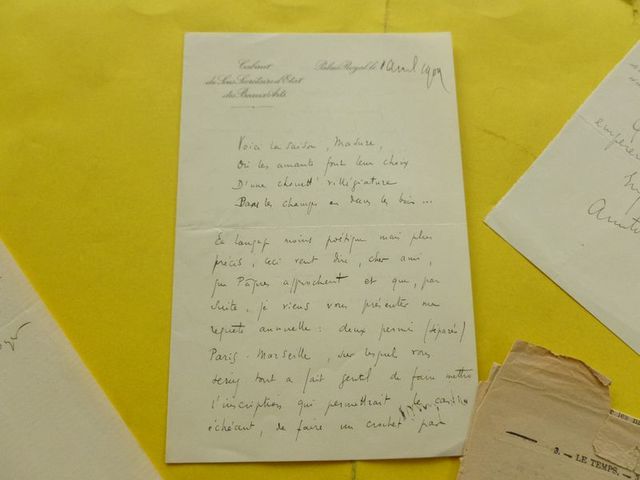 Cabinet
du Sous-Secrétaire d'Etat
des Beaux-Arts
Palais-Royal, le 1 avril
Voici la saison, Madure,
Où les amants font leur choix
D'une chouett' villégiature
Dans les champs ou dans les bois ...
En langage moins poétique mais plus
précis, ceci veut dire, cher ami,
que Pâques approchent et que, par
suite, je viens vous présenter ma
requête annuelle : deux permis (séparés)
Paris - Marseille, sur lesquels vous
seriez tout à fait gentil de faire mettre
l'inscription qui permettrait le cas
échéant, de faire un crochet par
3. — LE TEMPS. —